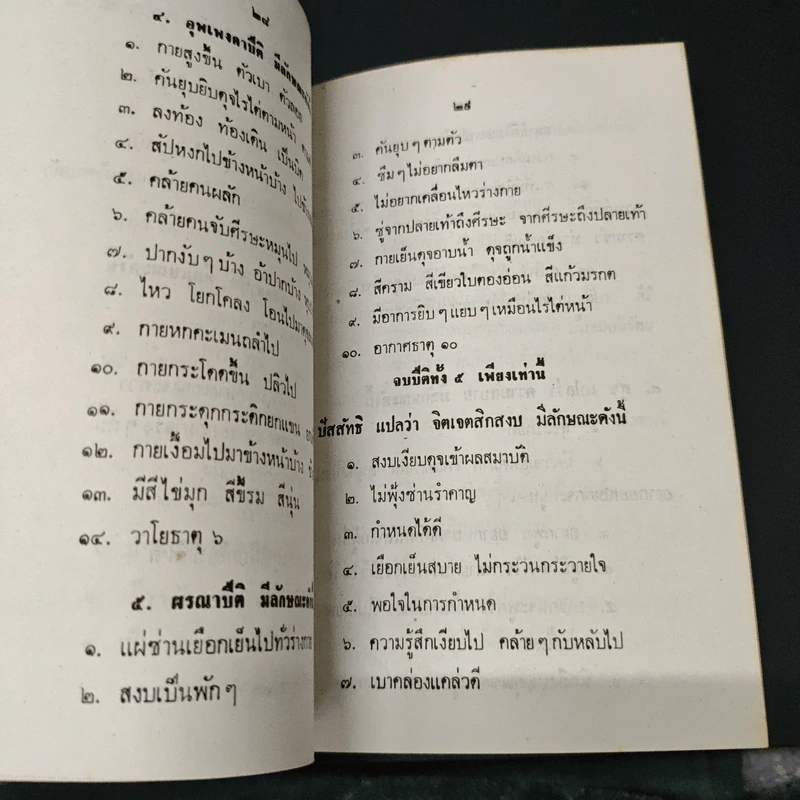 ๒๘
๔. อุพเพงคาปีติ มีลักษณะ
๑. กายสูงขึ้น ตัวเบา ตัวลอย
๒. คันยุบยิบดุจไรไต่ตามหน้า
๓. ลงท้อง ท้องเดิน เป็นบิด
๔. สัปหงกไปข้างหน้าบ้าง
๕. คล้ายคนผลัก
๖. คล้ายคนจับศีรษะหมุนไป
๗. ปากงับๆ บ้าง อ้าปากบ้าง
๘. ไหว โยกโคลง โอนไปมา
๙. กายหกคะเมนถลำไป
๑๐. กายกระโดดขึ้น ปลิวไป
๑๑. กายกระดุกกระดิกยกแขน
๑๒. กายเงื้อมไปมาข้างหน้าบ้าง
๑๓. มีสีไข่มุก สีขี้รม สีนุ่น
๑๔. วาโยธาตุ ๖
๕. ผรณาปีติ มีลักษณะ
๑. แผ่ซ่านเยือกเย็นไปทั่วร่างกาย
๒. สงบเป็นพักๆ
๒๙
๓. คันยุบๆ ตามตัว
๔. ซึมๆ ไม่อยากลืมตา
๕. ไม่อยากเคลื่อนไหวร่างกาย
๖. ซู่จากปลายเท้าถึงศีรษะ จากศีรษะถึงปลายเท้า
๗. กายเย็นดุจอาบน้ำ ดุจถูกน้ำแข็ง
๘. สีคราม สีเขียวใบตองอ่อน สีแก้วมรกต
๙. มีอาการยิบๆ แยบๆ เหมือนไรไต่หน้า
๑๐. อากาศธาตุ ๑๐
จบปีติทั้ง ๕ เพียงเท่านี้
ปัสสัทธิ แปลว่า จิตเจตสิกสงบ มีลักษณะดังนี้
๑. สงบเงียบดุจเข้าผลสมาบัติ
๒. ไม่ฟุ้งซ่านรำคาญ
๓. กำหนดได้ดี
๔. เยือกเย็นสบาย ไม่กระวนกระวายใจ
๕. พอใจในการกำหนด
๖. ความรู้สึกเงียบไป คล้ายๆ กับหลับไป
๗. เบาคล่องแคล่วดี